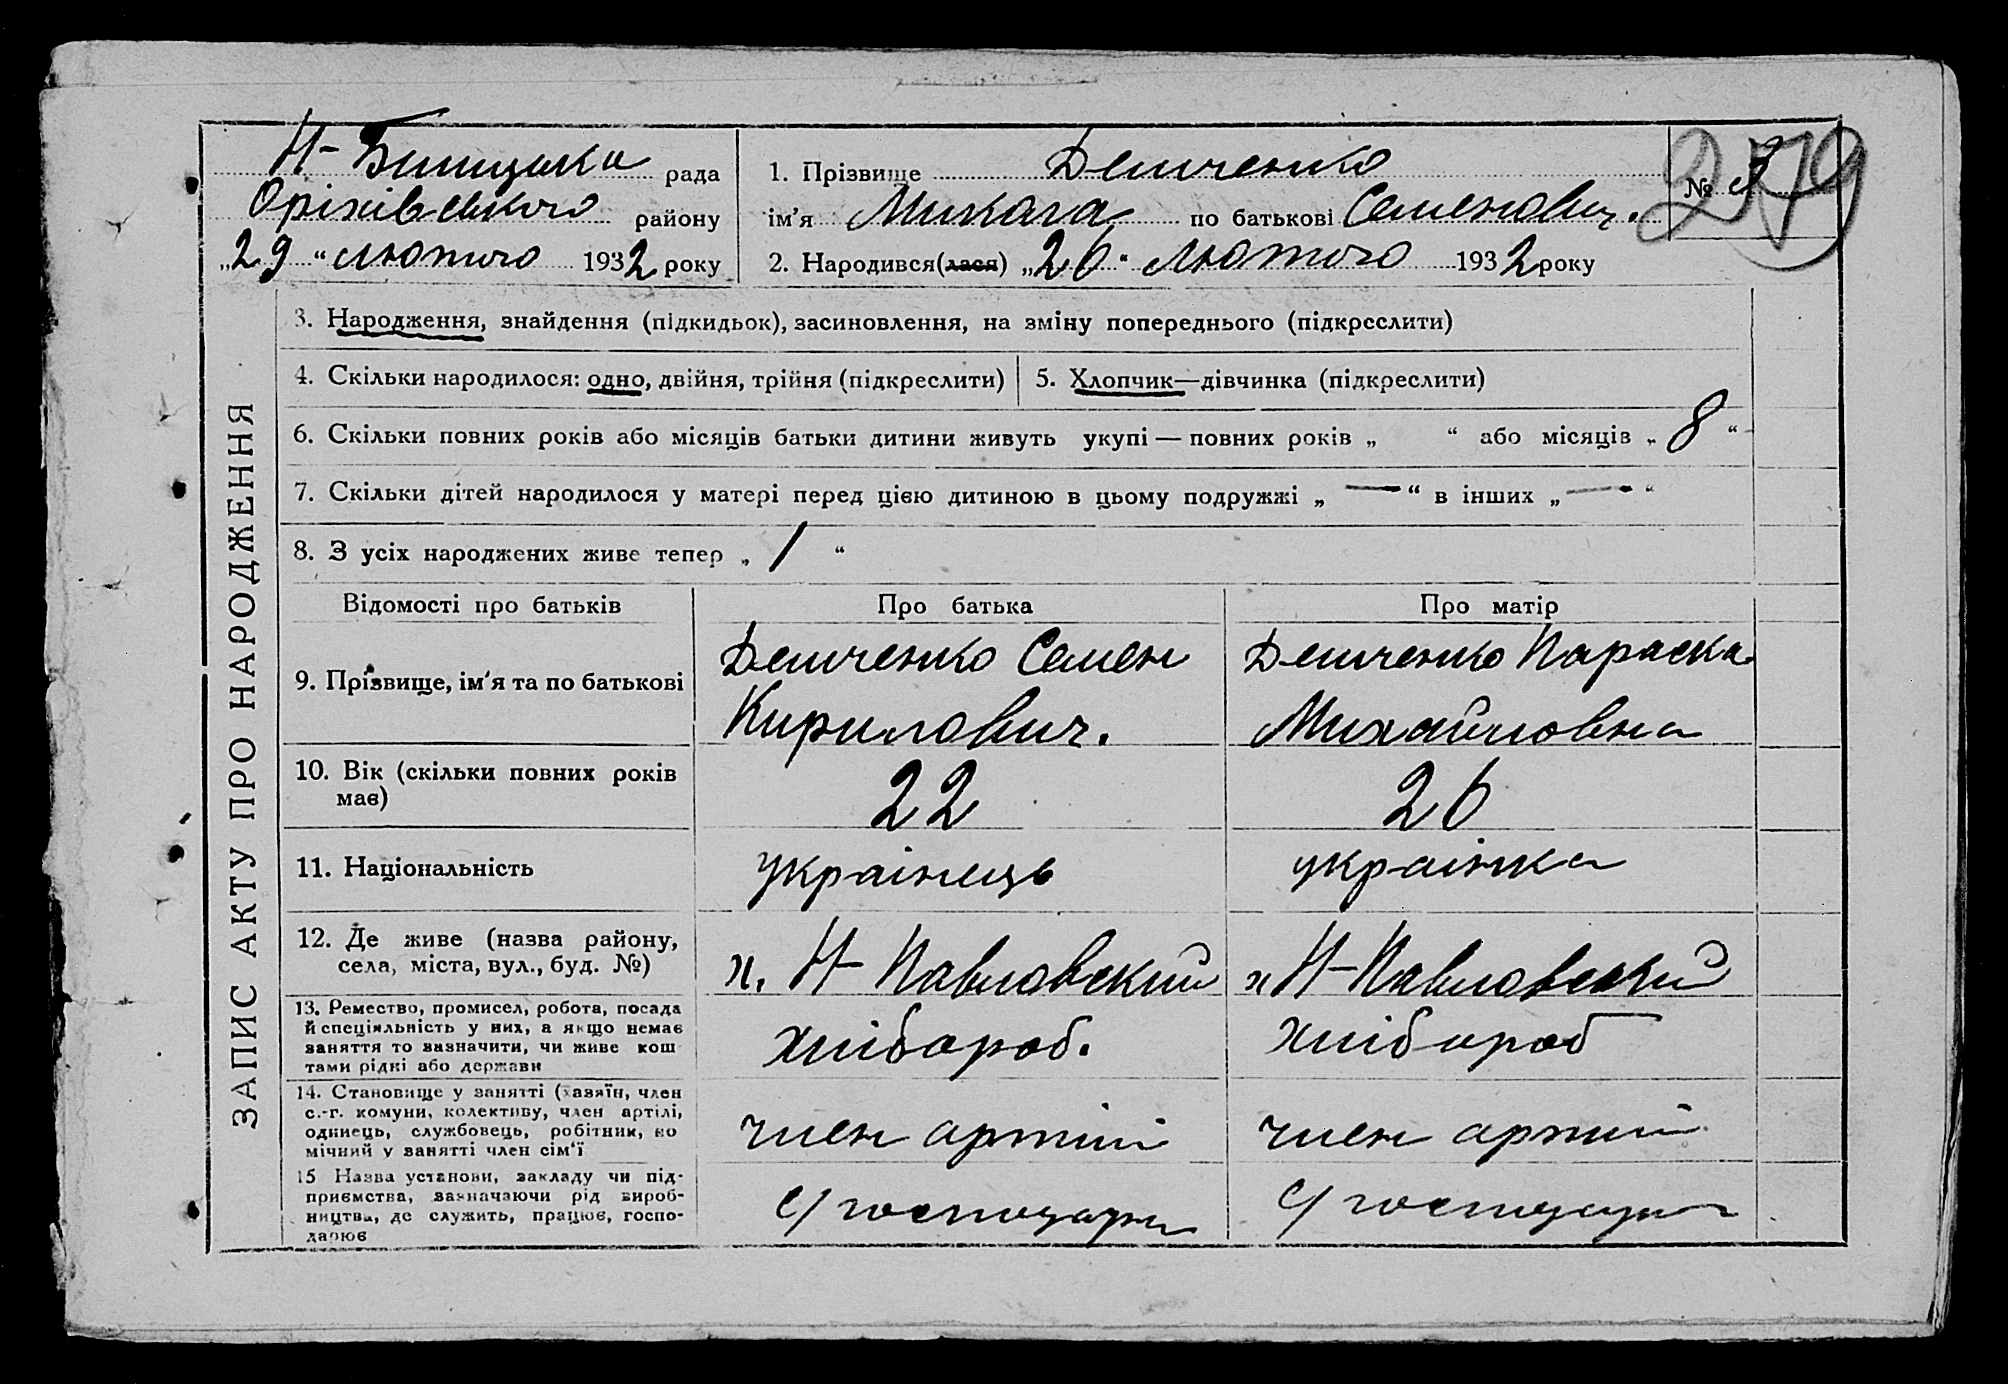 Н-Білицька рада
Оріхівського району
„29“ лютого 1932 року
1. Прізвище Демченко
ім'я Микола по батькові Семенович.
2. Народився(лася) „26“ лютого 1932 року
№ 3
279
ЗАПИС АКТУ ПРО НАРОДЖЕННЯ
3. Народження, знайдення (підкидьок), засиновлення, на зміну попереднього (підкреслити)
4. Скільки народилося: одно, двійня, трійня (підкреслити)
5. Хлопчик—дівчинка (підкреслити)
6. Скільки повних років або місяців батьки дитини живуть укупі — повних років „ “ або місяців „8“
7. Скільки дітей народилося у матері перед цією дитиною в цьому подружжі „—“ в інших „—“
8. З усіх народжених живе тепер „1“
Відомості про батьків Про батька Про матір
9. Прізвище, ім'я та по батькові
Демченко Семен
Кирилович.
Демченко Параска
Михайловна
10. Вік (скільки повних років
має)
22
26
11. Національність
українець
українка
12. Де живе (назва району,
села, міста, вул., буд. №)
х. Н-Павловский
х Н-Павловский
13. Ремество, промисел, робота, посада
й спеціяльність у них, а якщо немає
заняття то зазначити, чи живе кош
тами рідні або держави
хлібороб.
хлібороб
14. Становище у занятті (хазяїн, член
с.-г. комуни, колективу, член артілі,
одинець, службовець, робітник, по
мічний у занятті член сім'ї
член артілі
член артілі
15 Назва установи, закладу чи під-
приємства, зазначаючи рід вироб-
ництва, де служить, працює, госпо-
дарює
с/господарка
с/господарка